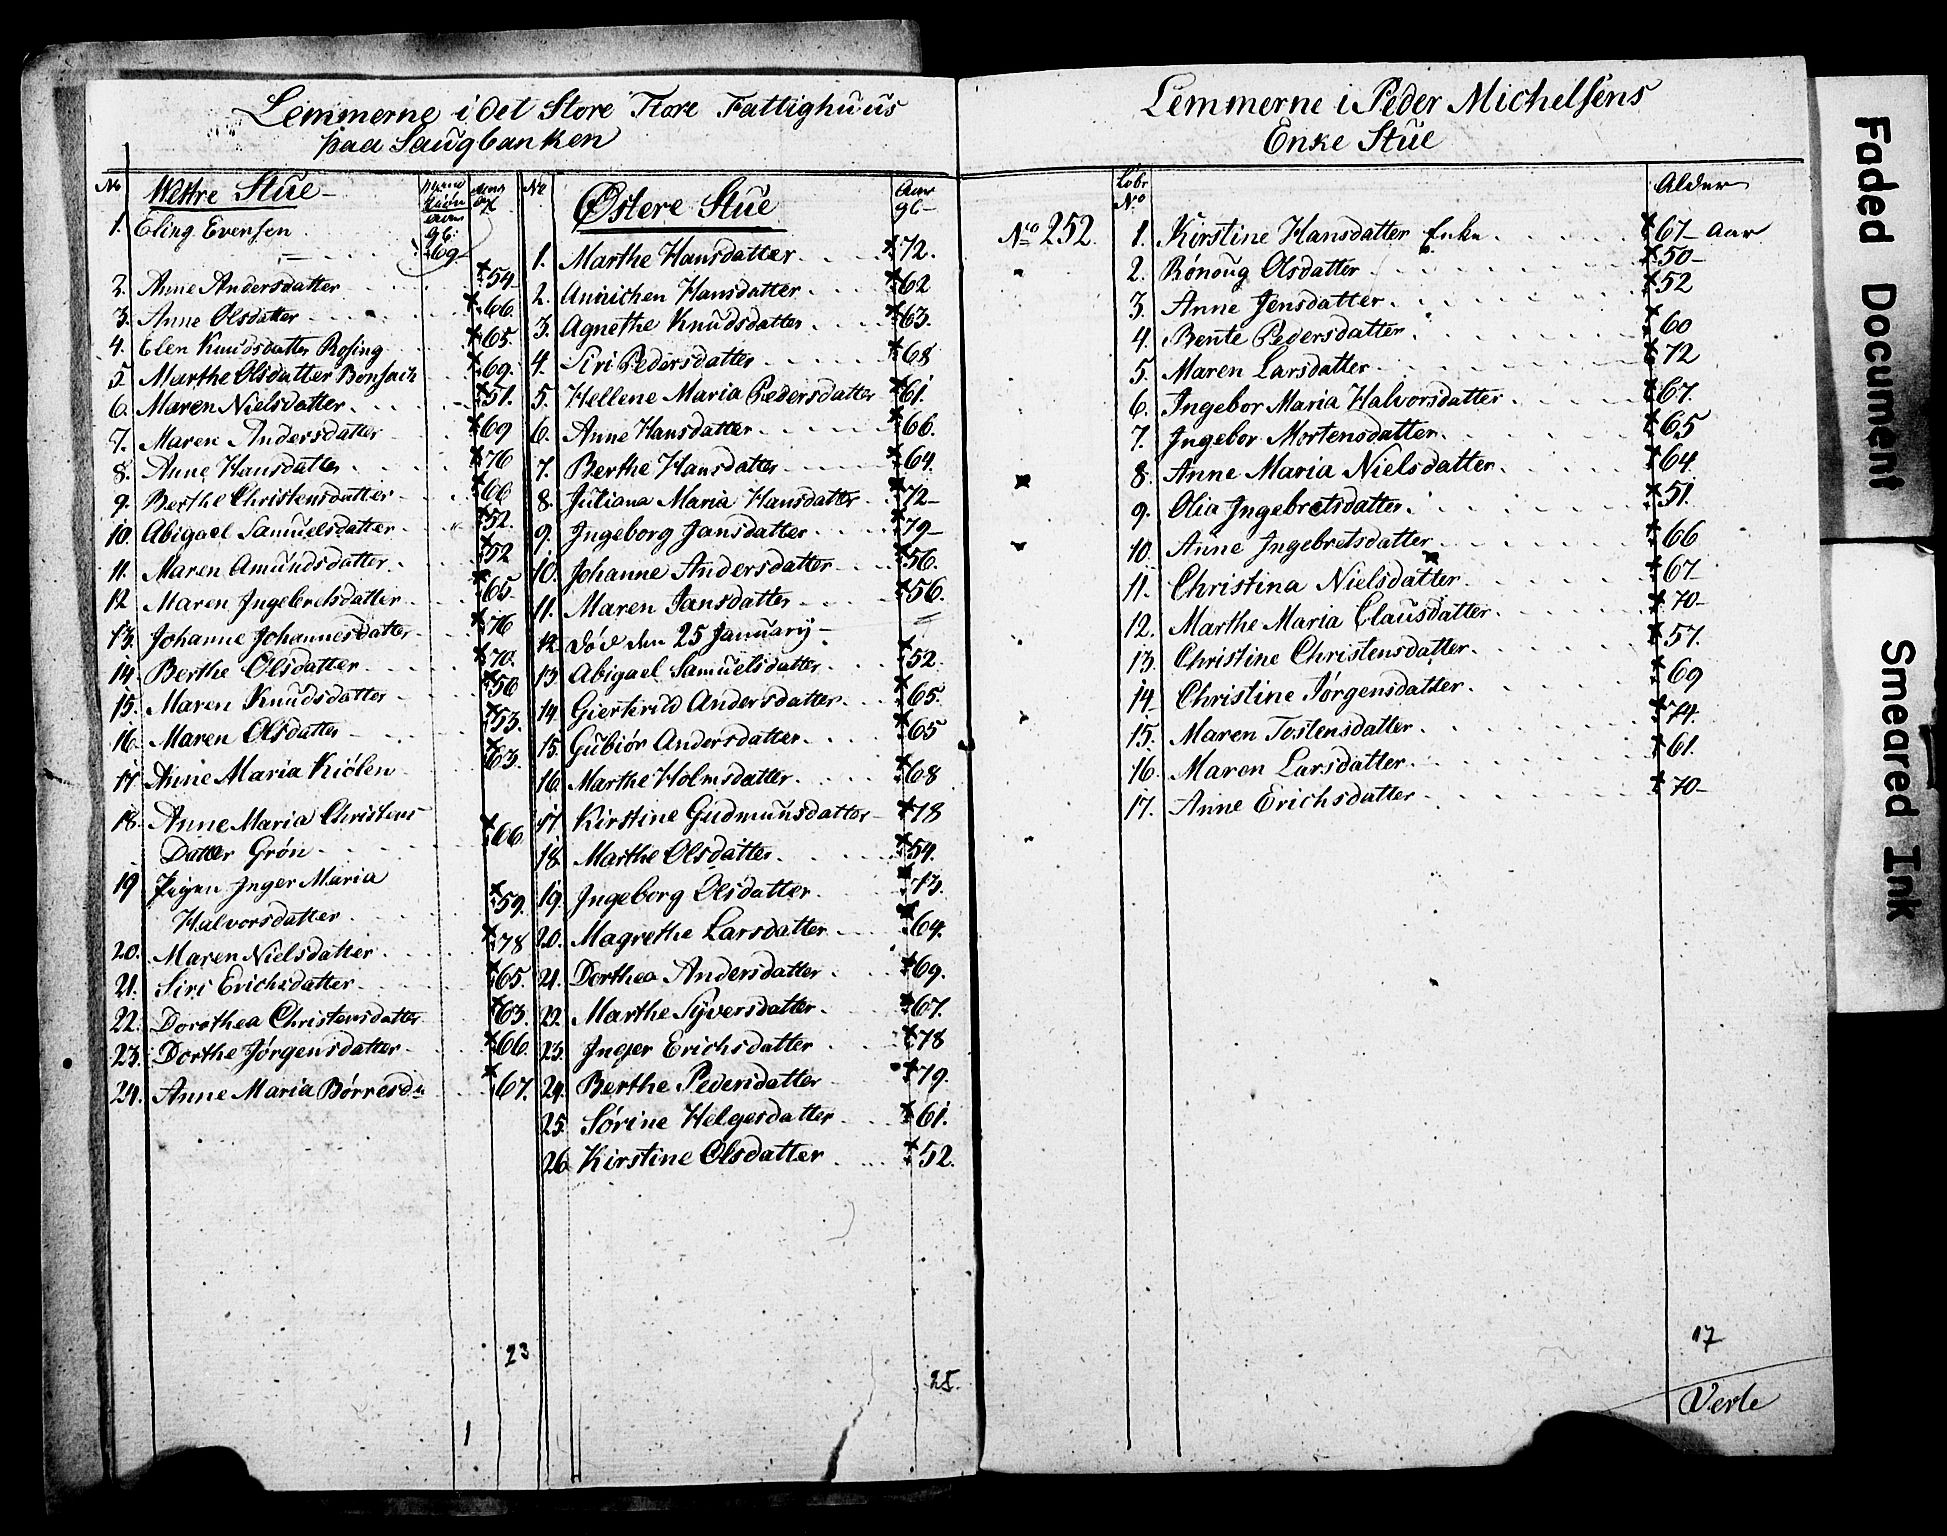 Lemmerne i det Store Fattighuus
paa Saugbanken
No Westre Stue
1. Eling Evensen 69
2. Anne Andersdatter 54
3. Anne Olsdatter 66
4. Elen Knudsdatter Rosing 65
5. Marthe Olsdatter 69
6. Maren Nielsdatter 51.
7. Maren Andersdatter 69
8. Anne Hansdatter 76
9. Berthe Christensdatter 66
10. Abigael Samuelsdatter 52.
11. Maren Amundsdatter 52
12 Maren Ingebretsdatter 65
13. Johanne Johannesdatter 76
14. Berthe Olsdatter 70.
15. Maren Knudsdatter 56
16. Maren Olsdatter 53.
17 Anne Maria Kiölen 63.
18. Anne Maria Christens
Datter Grön 66
19 Inger Maria
Halvorsdatter 59.
20. Maren Nielsdatter 78
21. Siri Erichsdatter 65
22. Dorothea Christensdatter 63.
23. Dorthe Jörgensdatter 66.
24. Anne Maria Börresd 67.
23
1
No Østere Stue Aar
gl
1. Marthe Hansdatter 72.
2. Annichen Hansdatter 62
3. Agnethe Knudsdatter 63.
4. Siri Pedersdatter 68
5. Hellene Maria Pedersdatter 61.
6. Anne Hansdatter 66.
7. Berthe Hansdatter 64.
8. Juliana Maria Hansdatter 72
9. Ingeborg Jansdatter 79
10. Johanne Andersdatter 56.
11. Maren Jansdatter 56.
12. död den 25 January
13 Abigael Samuelsdatter 52.
14. Giertrud Andersdatter 65.
15. Gubiör Andersdatter 65
16. Marthe Holmsdatter 68
17 Kirstine Gudmunsdatter 78
18. Marthe Olsdatter 54.
19. Ingeborg Olsdatter 73.
20. Magrethe Larsdatter 64.
21. Dorthea Andersdatter 69.
22. Marthe Syversdatter 67.
23. Inger Erichsdatter 78
24. Berthe Pedersdatter 79.
25. Sörine Helgesdatter 61.
26 Kirstine Olsdatter 52.
25.
Lemmerne i Peder Michelsens
Enke Stue
Löbe No Alder
No 252. 1. Kirstine Hansdatter Enke 67 Aar
2. Rönoug Olsdatter 50
3. Anne Jensdatter 52
4. Bente Pedersdatter 60
5. Maren Larsdatter 72
6. Ingebor Maria Halvorsdatter 67.
7. Ingebor Mortensdatter 65
8. Anne Maria Nielsdatter 64
9. Olia Ingebretsdatter 51.
10. Anne Ingebretsdatter 66
11. Christina Nielsdatter 67
12. Marthe Maria Clausdatter 70
13. Christine Christensdatter 57.
14 Christine Jörgensdatter 69
15. Maren Tostensdatter 74.
16. Maren Larsdatter 61.
17. Anne Erichsdatter 70
17
Verte
Faded Document
Smeared Ink